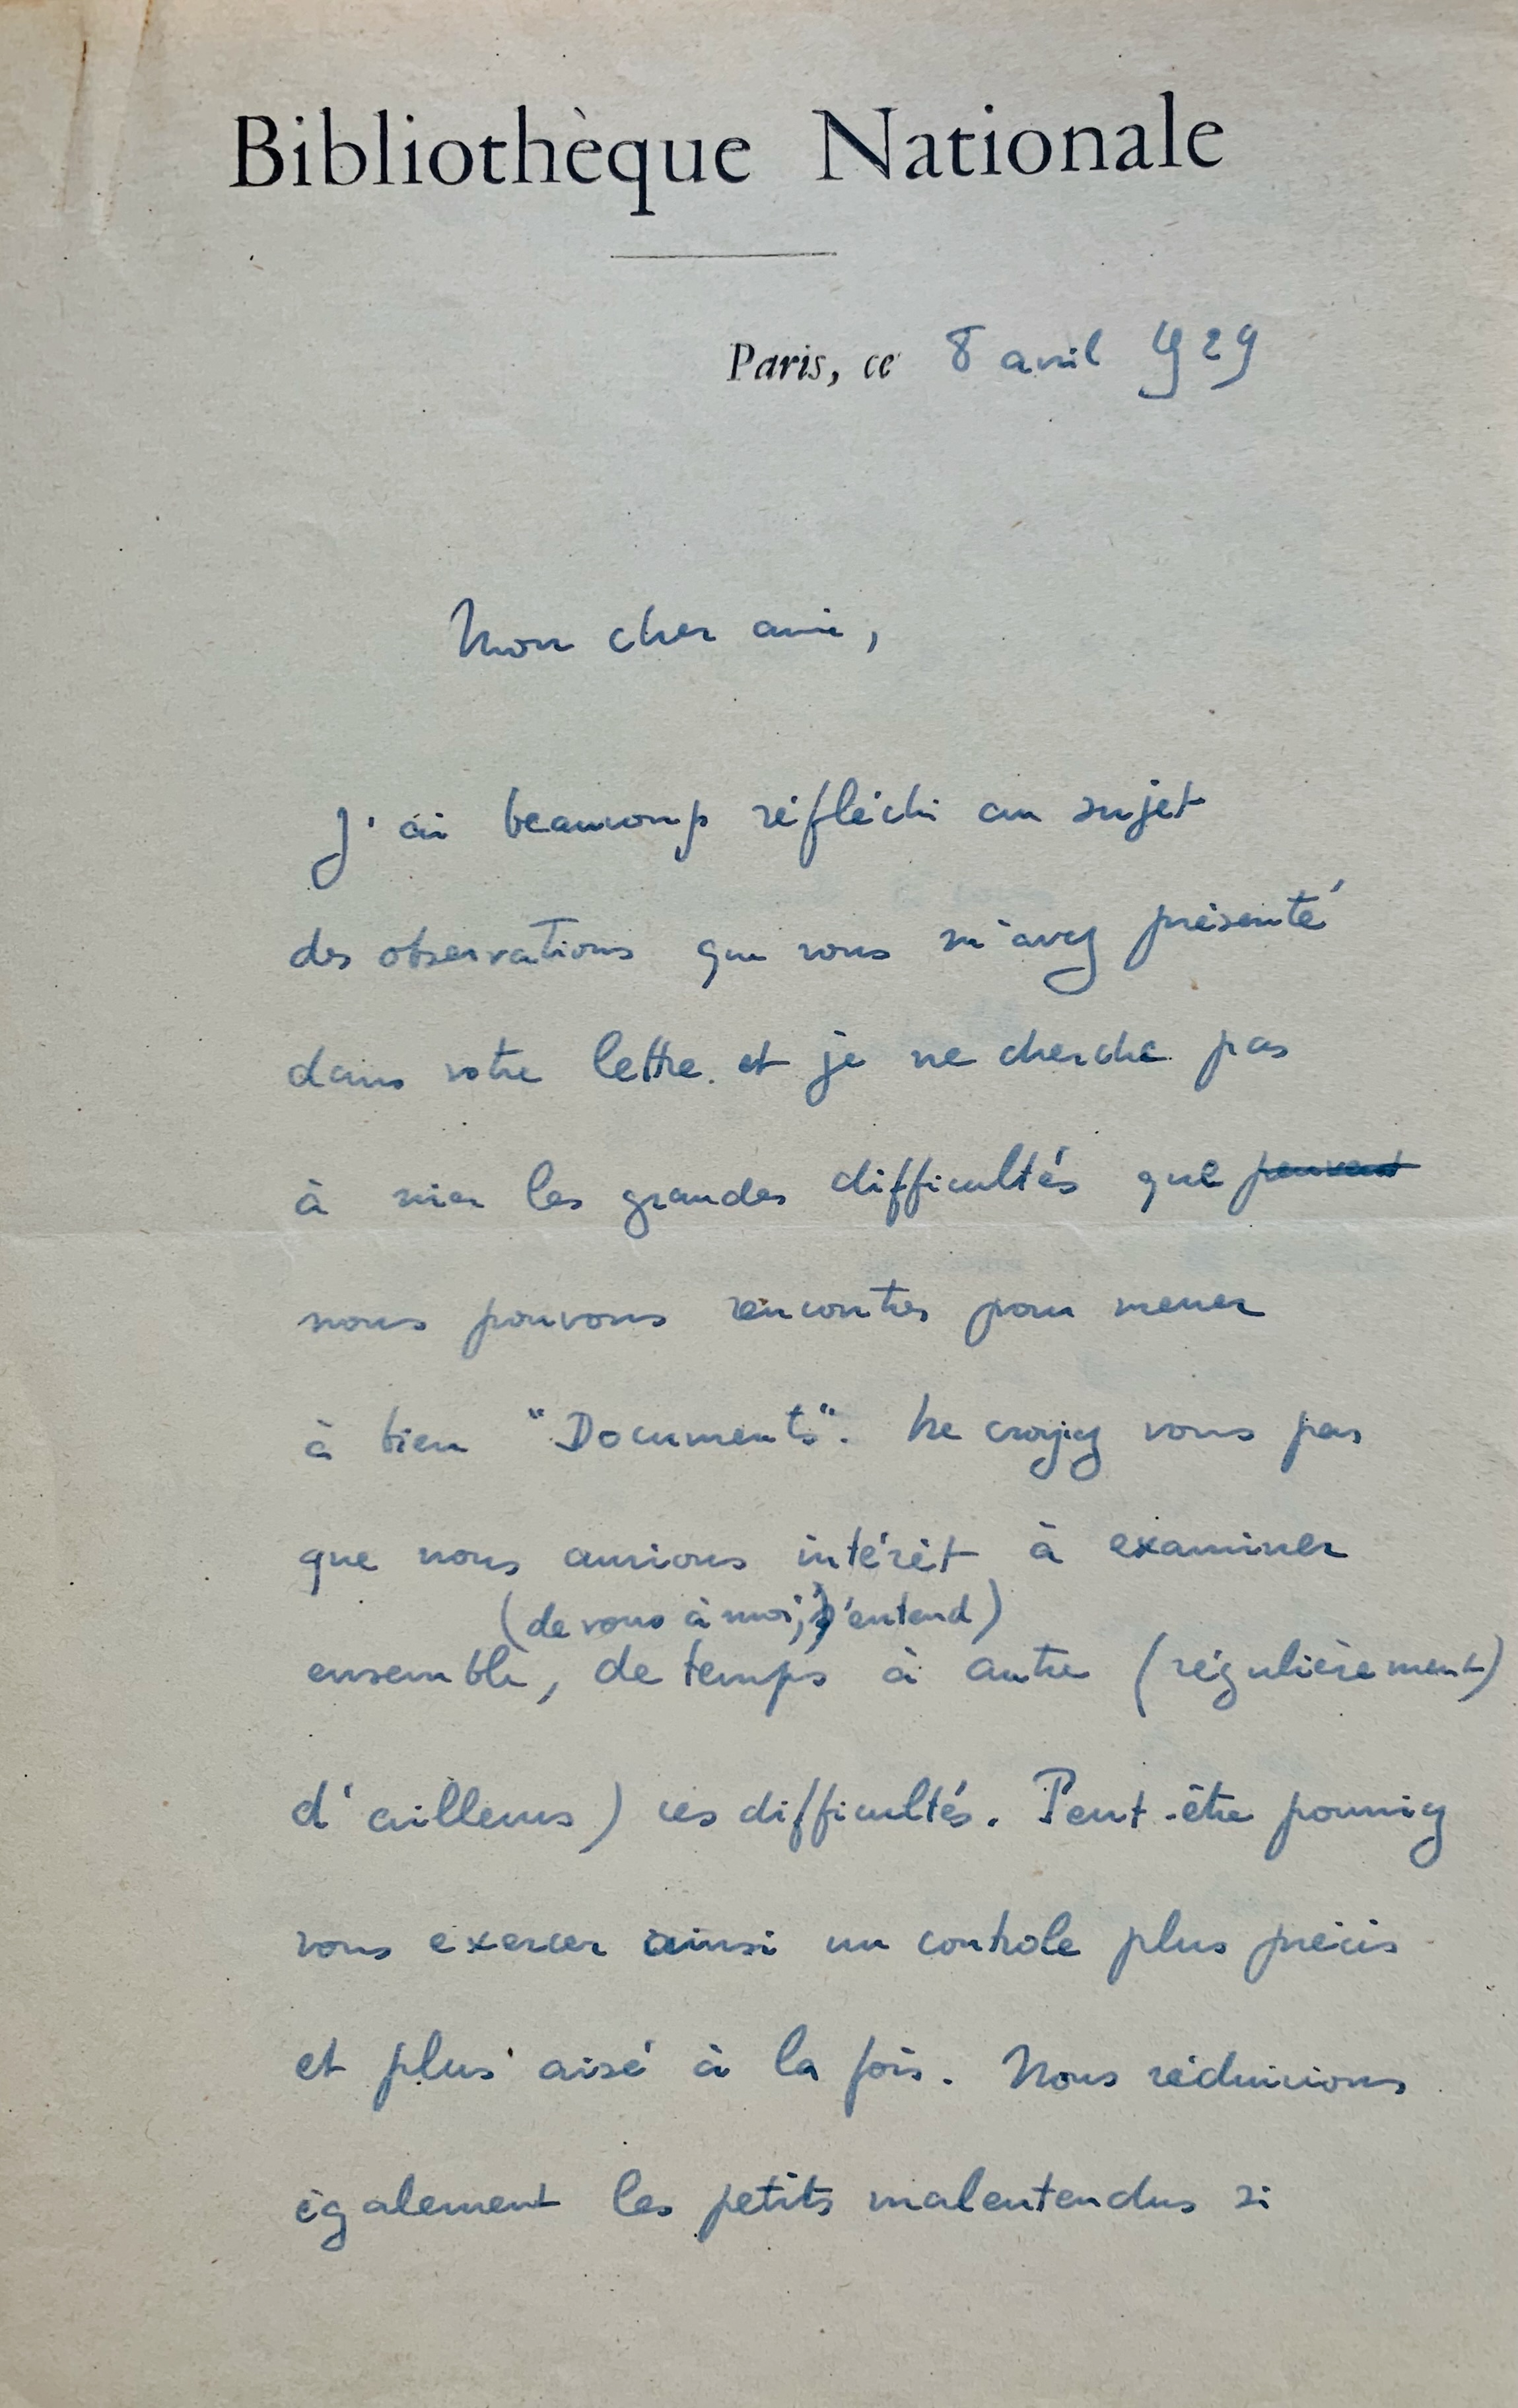 Bibliothèque Nationale
Paris, ce 8 avril 1929
Mon cher ami,
J'ai beaucoup réfléchi au sujet
des observations que vous m'avez présenté
dans votre lettre et je ne cherche pas
à nier les grandes difficultés que peuvent
nous pouvons rencontrer pour mener
à bien "Documents". Ne croyez vous pas
que nous aurions intérêt à examiner
(de vous à moi, s'entend)
ensemble, de temps à autre (régulièrement)
d'ailleurs) ces difficultés. Peut-être pourriez
vous exercer ainsi un controle plus précis
et plus aisé à la fois. Nous réduirions
également les petits malentendus si